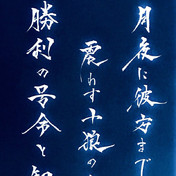 月夜に彼方まで
震わす小狼の
勝利の号令と知